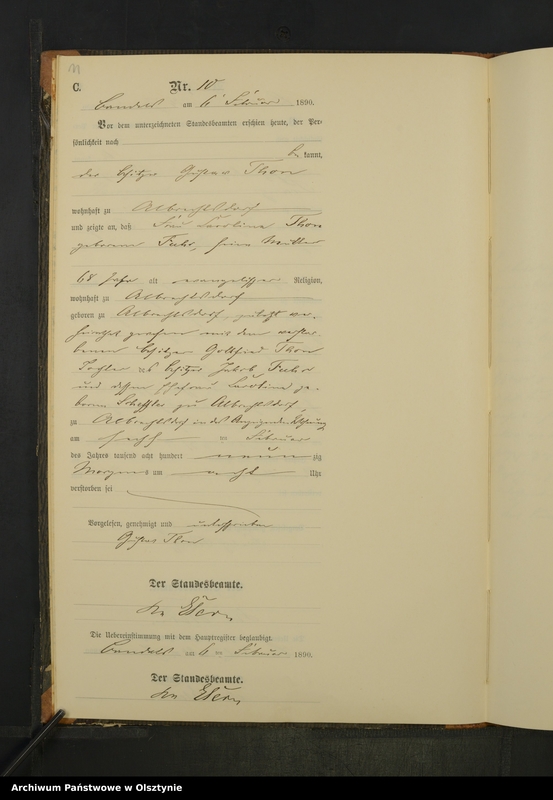 11
C.
Nr. 10
Bandels am 6 Februar 1890.
Vor dem unterzeichneten Standesbeamten erschien heute, der Per-
sönlichkeit nach
be kannt,
der Besitzer Gustav Thon
wohnhaft zu Albrechtsdorf
und zeigte an, daß Frau Caroline Thon
geborene Fuhr, seine Mutter
68 Jahre alt evangelischer Religion,
wohnhaft zu Albrechtsdorf
geboren zu Albrechtsdorf, zuletzt ver-
heirathet gewesen mit dem verstor-
benen Besitzer Gottfried Thon
Tochter des Besitzer Jakob Fuhr
und dessen Ehefrau Caroline ge-
borene Scheffler zu Albrechtsdorf,
zu Albrechtsdorf in des Anzeigenden Wohnung
am sechs ten Februar
des Jahres tausend acht hundert neun zig
Morgens um acht Uhr
verstorben sei
Vorgelesen, genehmigt und unterschrieben
Gustav Thon
Der Standesbeamte.
Die Uebereinstimmung mit dem Hauptregister beglaubigt.
Bandels am 6 ten Februar 1890.
Der Standesbeamte.
Archiwum Państwowe w Olsztynie